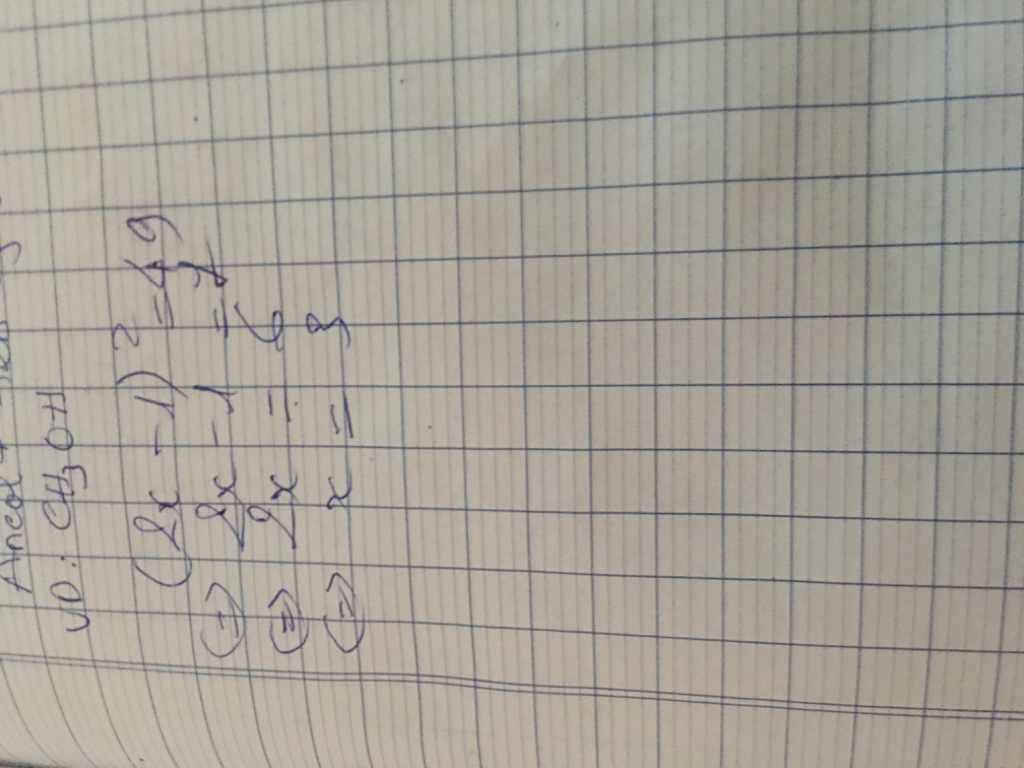 Ancol
VD: CH₃OH
(2x - 1)² = 49
(=) 2x - 1 = 7
(=) 2x = 6
(=) x = 3